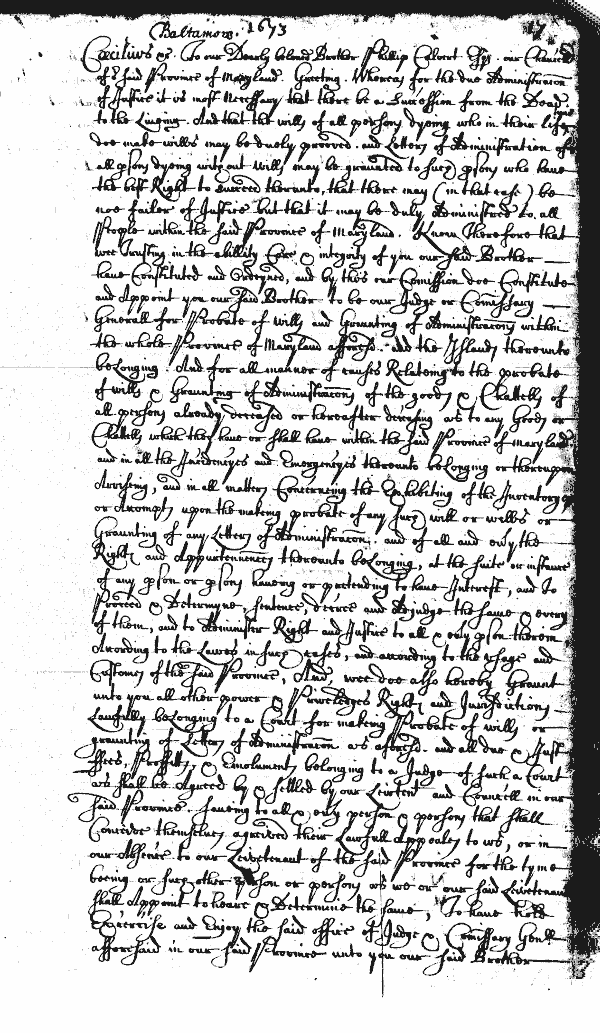 Baltamore. 1673 17
Cæcilius &c. To our Dearly beloved Brother Phillip Calvert Esqr. our Chancellr
of o:r said Province of Maryland. Greeting. Whereas for the due Administracon
of Justice it is most necessary, that there be a Succession from the Dead
to the Liveing. And that the wills of all persons dyeing who in their life
doe make wills may be duely prooved. and Letters of Administration of
all psons dyeing without wills may be graunted to such psons who have
the best Right to succeed thereunto, that there may (in that case) be
noe failer of Justice but that it may be duly Administred to all
People within the said Province of Maryland. Know Therefore that
wee Trusting in the abillity Care & integrity of you our said Brother
have Constituted and Ordeyned, and by this our Comission doe Constitute
and Appoint you our said Brother to be our Judge or Comissary
Generall for Probate of wills and Graunting of Administracons within
the whole Province of Maryland aforesd. and the Islands thereunto
belonging. And for all manner of causes Relateing to the probate
of wills & Graunting of Administracons of the goods & Chattells of
all persons already deceased or hereafter deceasing as to any Goods or
Chattells which they have or shall have within the said Province of Maryland
and in all the Incidencyes and Emergencyes thereunto belonging or thereupon
Ariseing, and in all matters Concerning the Exhibiting of the Inventorys
or Accompts upon the makeing probate of any such will or wills or
Graunting of any Letters of Administracon. and of all and every the
Rights and Appurtenences thereunto belonging, at the suite or instance
of any pson or psons haveing or pretending to have Interest, and To
Proceed & Determyne, sentence, decree and Adjudge the same & every
of them, and to Administer Right and Justice to all & every pson therein
According to the Lawes in such cases, and according to the usage and
Customes of the said Province, And, wee doe also hereby Graunt
unto you all other power & Priviledges Rights and Jurisdictions
Lawfully belonging to a Court for makeing Probate of wills or
graunting of Letters of Administracon as aforesd. and all due & Just
ffees, Proffitts, & Emoluments belonging to a Judge of such a Court
as shall be Agreed by & settled by our Leivtent and Councell in our
said Province. saveing to all & every person & persons that shall
Conceive themselves agreived their Lawfull Appeales to us, or in
our Absence to our Leivetenant of the said Province for the tyme
being or such other person or persons as we or our said Leivetenant
shall Appoint to heare & Determine the same, To have hold
Exercise and Enjoy the said office of Judge & Comissary Genll
afforesaid in our said Province unto you our said Brother